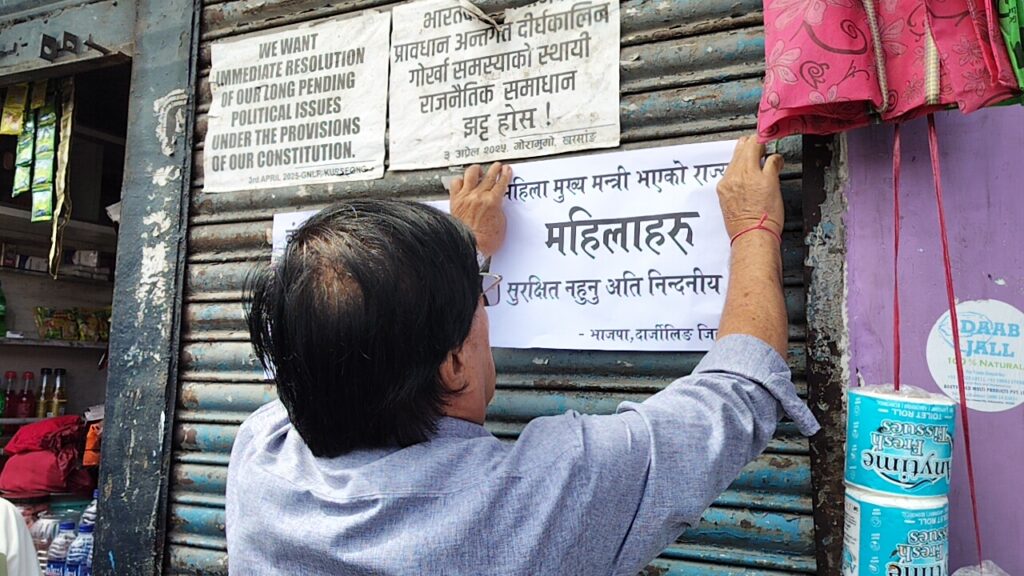 WE WANT
IMMEDIATE RESOLUTION
OF OUR LONG PENDING
POLITICAL ISSUES
UNDER THE PROVISIONS
OF OUR CONSTITUTION.
3rd APRIL 2025-GNLF, KURSEONG
प्रावधान अन्तर्गत दीर्घकालिन
गोर्खा समस्याको स्थायी
राजनैतिक समाधान
झट्ट होस !
३ अप्रेल २०२५, गोरामुमो, खरसाङ
महिला मुख्य मन्त्री भएको
महिलाहरु
सुरक्षित नहुनु अति निन्दनीय
- भाजपा, दार्जीलिङ
DAAB
JALL
100% NATURAL
TOILET ROLL
Fresh
Tissues
Anytime
TOILET ROLL
Fresh